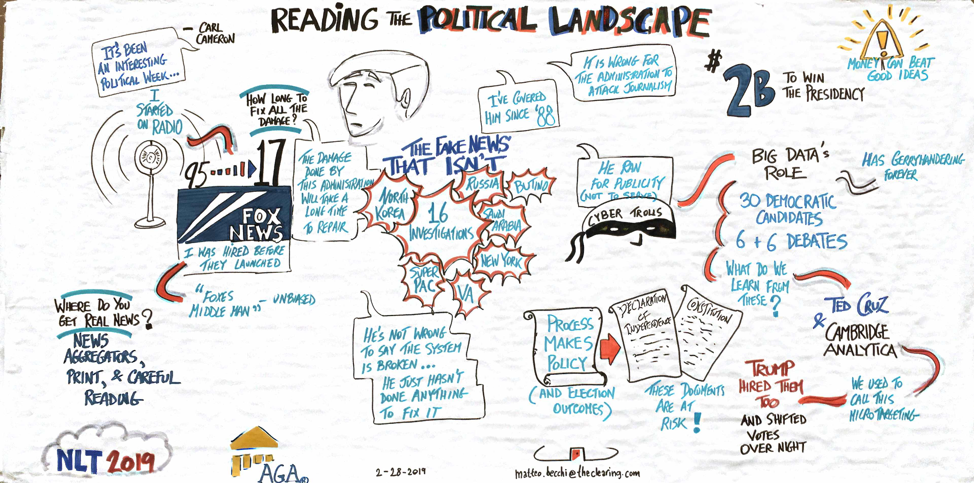 READING THE POLITICAL LANDSCAPE
IT'S BEEN
AN INTERESTING
POLITICAL WEEK...
- CARL
CAMERON
I
STARTED
ON RADIO
HOW LONG TO
FIX ALL THE
DAMAGE?
95 17
FOX
NEWS
I WAS HIRED BEFORE
THEY LAUNCHED
THE DAMAGE
DONE BY
THIS ADMINISTRATION
WILL TAKE A
LONG TIME
TO REPAIR
"FOXES
MIDDLE MAN" - UNBIASED
WHERE DO YOU
GET REAL NEWS?
NEWS
AGGREGATORS,
PRINT, & CAREFUL
READING
I'VE COVERED
HIM SINCE '88
IT IS WRONG FOR
THE ADMINISTRATION TO
ATTACK JOURNALISM
THE FAKE NEWS
THAT ISN'T
16
INVESTIGATIONS
NORTH
KOREA
RUSSIA
BUTINA
SAUDI
ARABIA
NEW YORK
VA
SUPER
PAC
HE RAN
FOR PUBLICITY
(NOT TO SERVE)
CYBER TROLLS
HE'S NOT WRONG
TO SAY THE SYSTEM
IS BROKEN...
HE JUST HASN'T
DONE ANYTHING
TO FIX IT
PROCESS
MAKES
POLICY
(AND ELECTION
OUTCOMES)
DECLARATION
OF
INDEPENDENCE
CONSTITUTION
THESE DOCUMENTS
ARE AT
RISK!
$2B TO WIN
THE PRESIDENCY
MONEY CAN BEAT
GOOD IDEAS
BIG DATA'S
ROLE
HAS GERRYMANDERING
FOREVER
30 DEMOCRATIC
CANDIDATES
6 + 6 DEBATES
WHAT DO WE
LEARN FROM
THESE?
TED CRUZ
&
CAMBRIDGE
ANALYTICA
WE USED TO
CALL THIS
MICROTARGETING
TRUMP
HIRED THEM
TOO
AND SHIFTED
VOTES
OVER NIGHT
NLT 2019
AGA
2-28-2019
matteo.becchi@theclearing.com